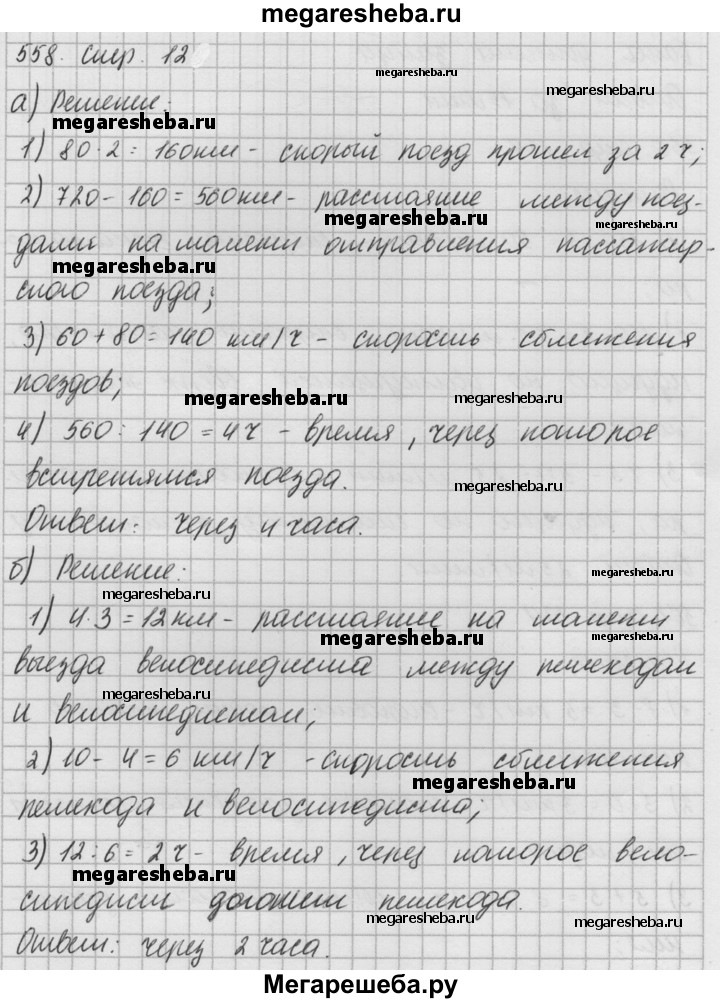 megaresheba.ru
558. Стр. 12
megaresheba.ru
а) Решение:
megaresheba.ru
1) 80·2 = 160км - скорый поезд прошел за 2 ч;
2) 720 - 160 = 560км - расстояние между поез-
megaresheba.ru megaresheba.ru
дами на момент отправления пассажир-
megaresheba.ru megaresheba.ru
ского поезда;
3) 60 + 80 = 140 км/ч - скорость сближения
поездов;
megaresheba.ru megaresheba.ru
4) 560 : 140 = 4ч - время, через которое
встретятся поезда.
megaresheba.ru
Ответ: через 4 часа.
б) Решение:
megaresheba.ru
megaresheba.ru
1) 4·3 = 12км - расстояние на момент
megaresheba.ru megaresheba.ru
выезда велосипедиста между пешеходом
megaresheba.ru
и велосипедистом;
2) 10 - 4 = 6 км/ч - скорость сближения
megaresheba.ru
пешехода и велосипедиста;
3) 12 : 6 = 2 ч - время, через которое вело-
сипедист догонит пешехода.
megaresheba.ru megaresheba.ru
Ответ: через 2 часа.
Мегарешеба.ру